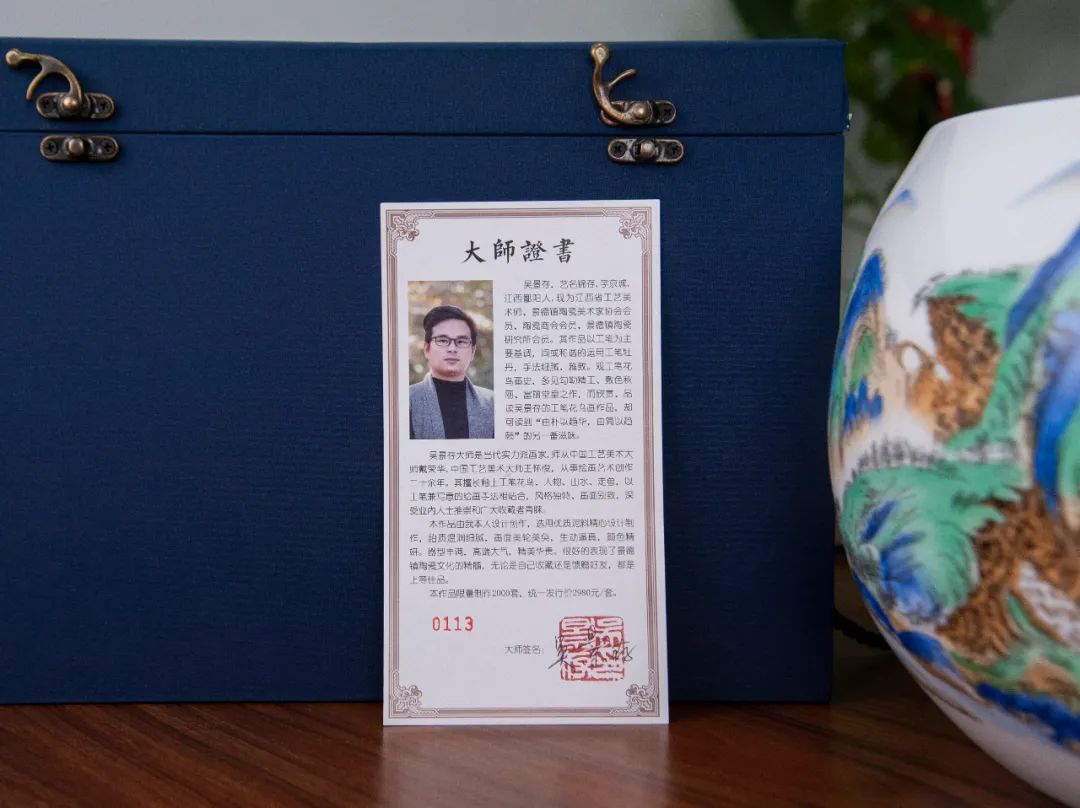 大師證書
吴景存，艺名锦存，字京城，
江西鄱阳人，现为江西省工艺美
术师、景德镇陶瓷美术家协会会
员、陶瓷商会会员、景德镇陶瓷
研究所会员。其作品以工笔为主
要基调，间或和谐的运用工笔牡
丹，手法细腻，雅致。观工笔花
鸟画史，多见勾勒精工、敷色秾
丽、富丽堂皇之作，而欣赏、品
读吴景存的工笔花鸟画作品，却
可读到“由朴以趋华，由简以趋
颐”的另一番滋味。
吴景存大师是当代实力派画家，师从中国工艺美术大
师戴荣华、中国工艺美术大师王怀俊，从事绘画艺术创作
二十余年。其擅长釉上工笔花鸟、人物、山水、走兽，以
工笔兼写意的绘画手法相结合，风格独特、画面别致，深
受业内人士推崇和广大收藏者青睐。
本作品由我本人设计创作，选用优质泥料精心设计制
作，胎质温润细腻，画面美轮美奂，生动逼真，颜色精
妍。器型丰满，高端大气，精美华贵。很好的表现了景德
镇陶瓷文化的精髓，无论是自己收藏还是馈赠好友，都是
上等佳品。
本作品限量制作2000套，统一发行价2980元/套。
0113
大师签名：